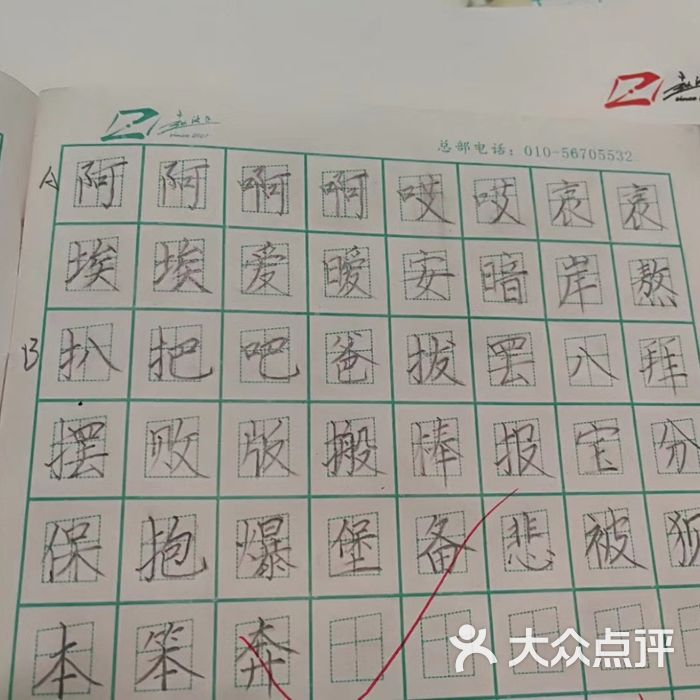 since 2007
总部电话：010-56705532
A 阿 阿 啊 啊 哎 哎 哀 哀
埃 埃 爱 暧 安 暗 岸 熬
B 扒 把 吧 爸 拔 罢 八 拜
摆 败 版 搬 棒 报 宝
保 抱 爆 堡 备 悲 被
本 笨 奔
大众点评